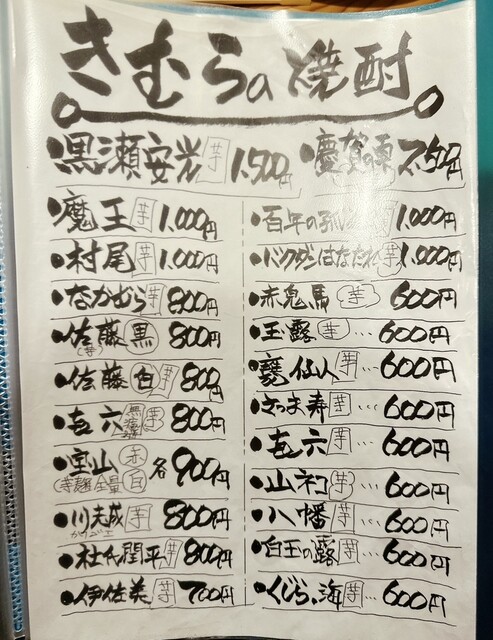 きむらの焼酎
黒瀬安光 芋 1,500円
慶賀の 円
魔王 芋 1,000円
村尾 芋 1,000円
なかむら 芋 800円
佐藤 黒 800円
(芋)
佐藤 白 芋 800円
㐂六 無濾過 芋 800円
宝山 赤 白 各900円
(芋麹全量)
川 芋 800円
杜氏潤平 芋 800円
伊佐美 芋 700円
百年の孤 1,000円
バクダンはなたれ 芋 1,000円
赤鬼馬 芋 600円
玉露 芋…600円
甕仙人 芋…600円
さつま寿 芋…600円
㐂六 芋…600円
山ネコ 芋…600円
八幡 芋…600円
白玉の露 芋…600円
くじら、海 芋…600円